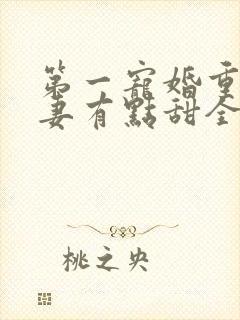 第一寵婚重
妻有點甜全
桃之央